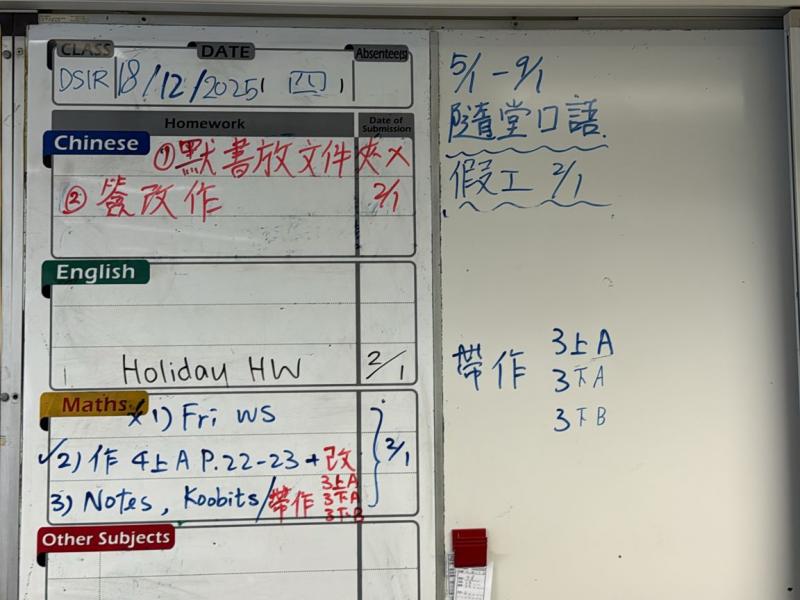 CLASS DATE Absentee(s)
DSIR 18/12/2025 (四)
Homework Date of Submission
Chinese
① 默書放文件夾 X
② 簽改作 2/1
English
Holiday HW 2/1
Maths
X 1) Fri WS
✓2) 作 4上A P.22-23 + 改 } 2/1
3) Notes, Koobits/帶作 3上A 3下A 3下B
Other Subjects
5/1 - 9/1
隨堂口語
假工 2/1
帶作 3上A
3下A
3下B